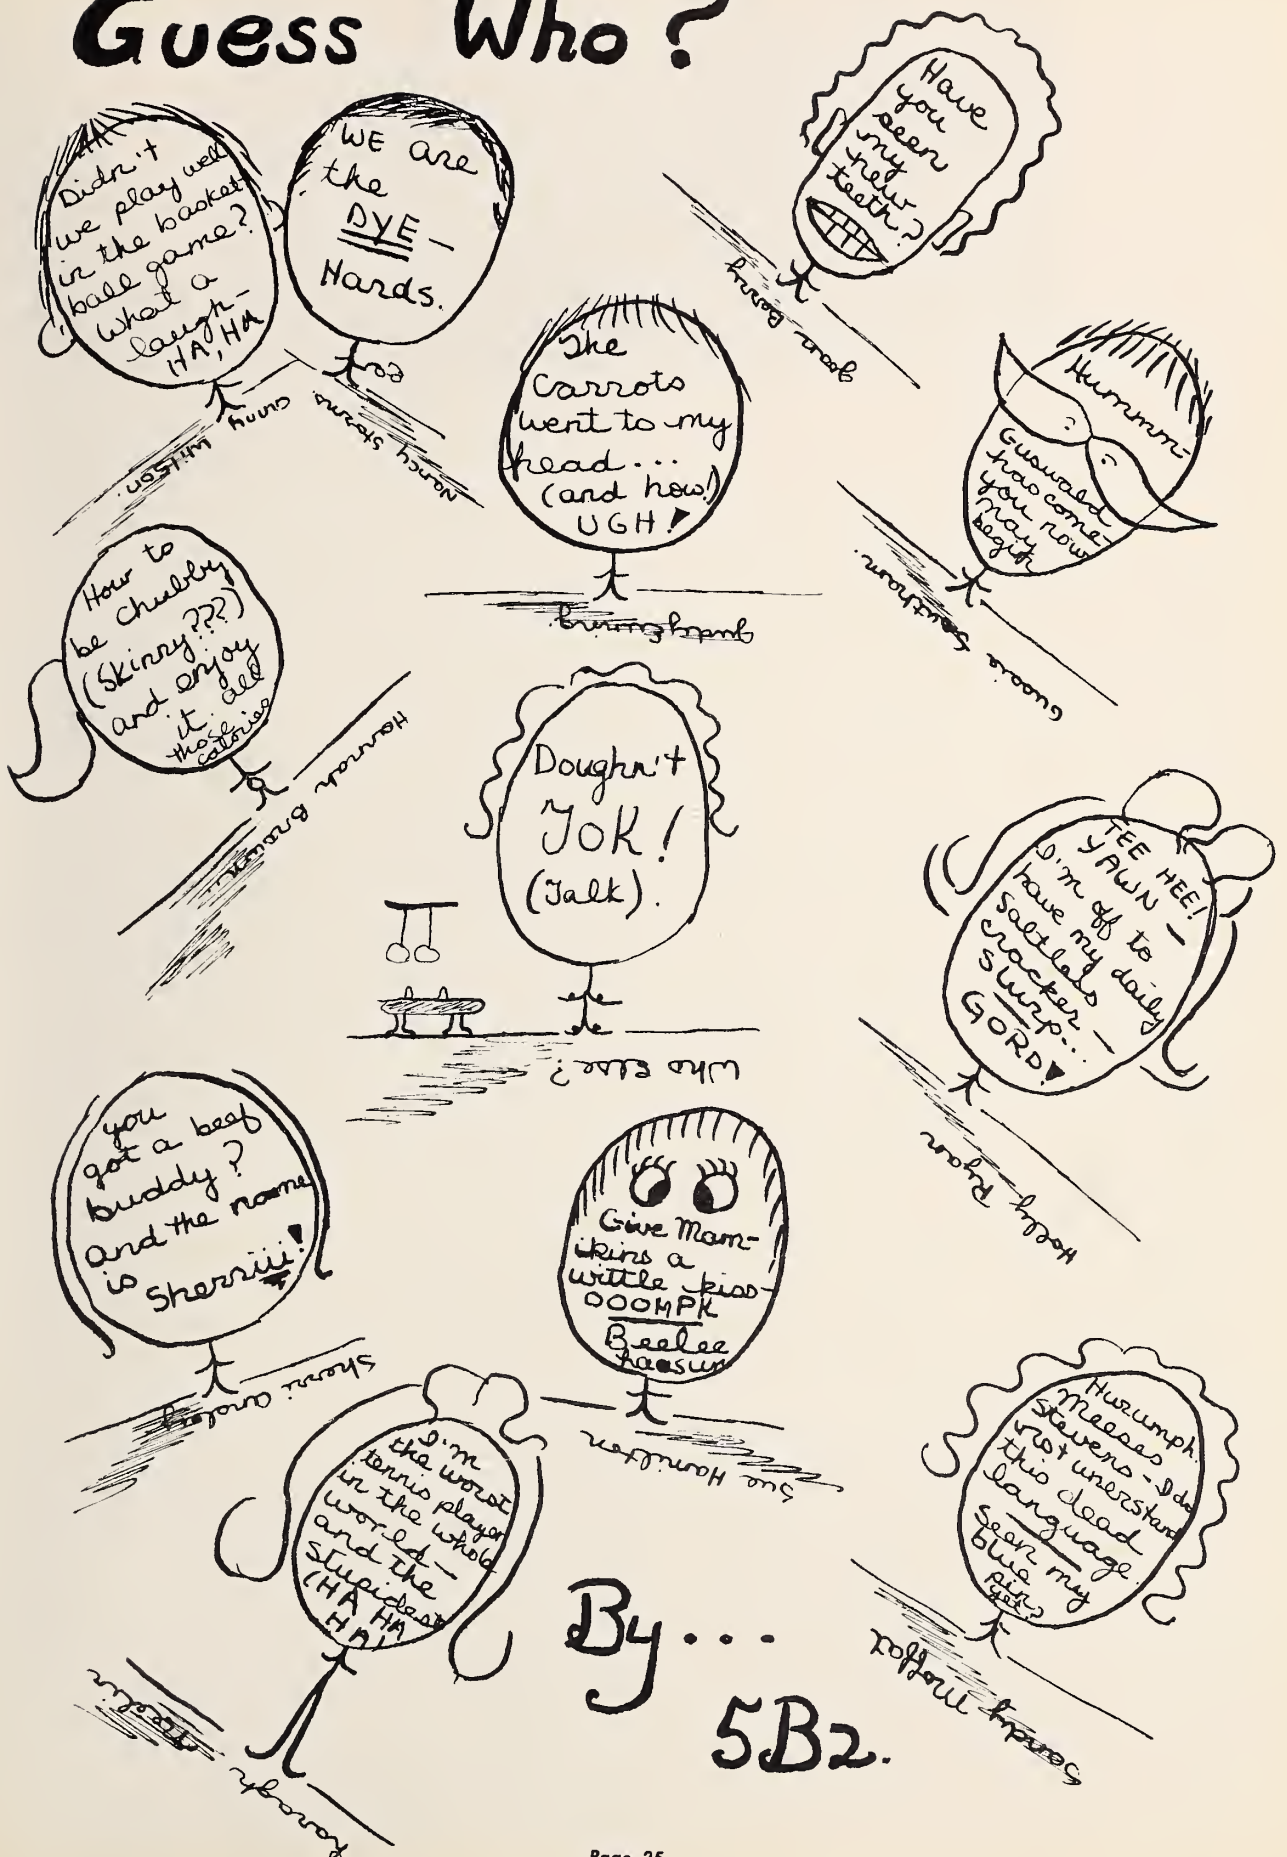 Guess Who?
Didn't
we play well
in the basket-
ball game?
What a
laugh-
HA, HA
Ginny Wilson.
WE are
the
DYE-
Hards.
Nancy Storms
Have
you
seen
my
new
teeth?
The
Carrots
went to my
head...
(and how!)
UGH!
Judy
Hummm-
Guswald
has come-
you now
may
begin
Gussie Southam.
How to
be chubby
(Skinny???)
and enjoy
it. all
those
calories
Hannah Brown
Doughn't
TOK!
(Talk).
Who Else?
TEE HEE!
YAWN —
I'm off to
have my daily
saltless
cracker —
Slurp...
GORD!
Holly Ryan
you
got a beef
buddy?
and the name
is Sherriii!
Sherri
Give Mam-
ikins a
wittle kiss-
OOOMPK
Beelee
Sue Hamilton
I'm
the worst
tennis player
in the whole
world—
and the
stupidest
(HA HA
HA!
Hurumph.
Meeses
Stevens - I do
not unerstand
this dead
language.
Seen my
blue
pin
yet?
Sandy Moffat
By...
5B2.
Page 25